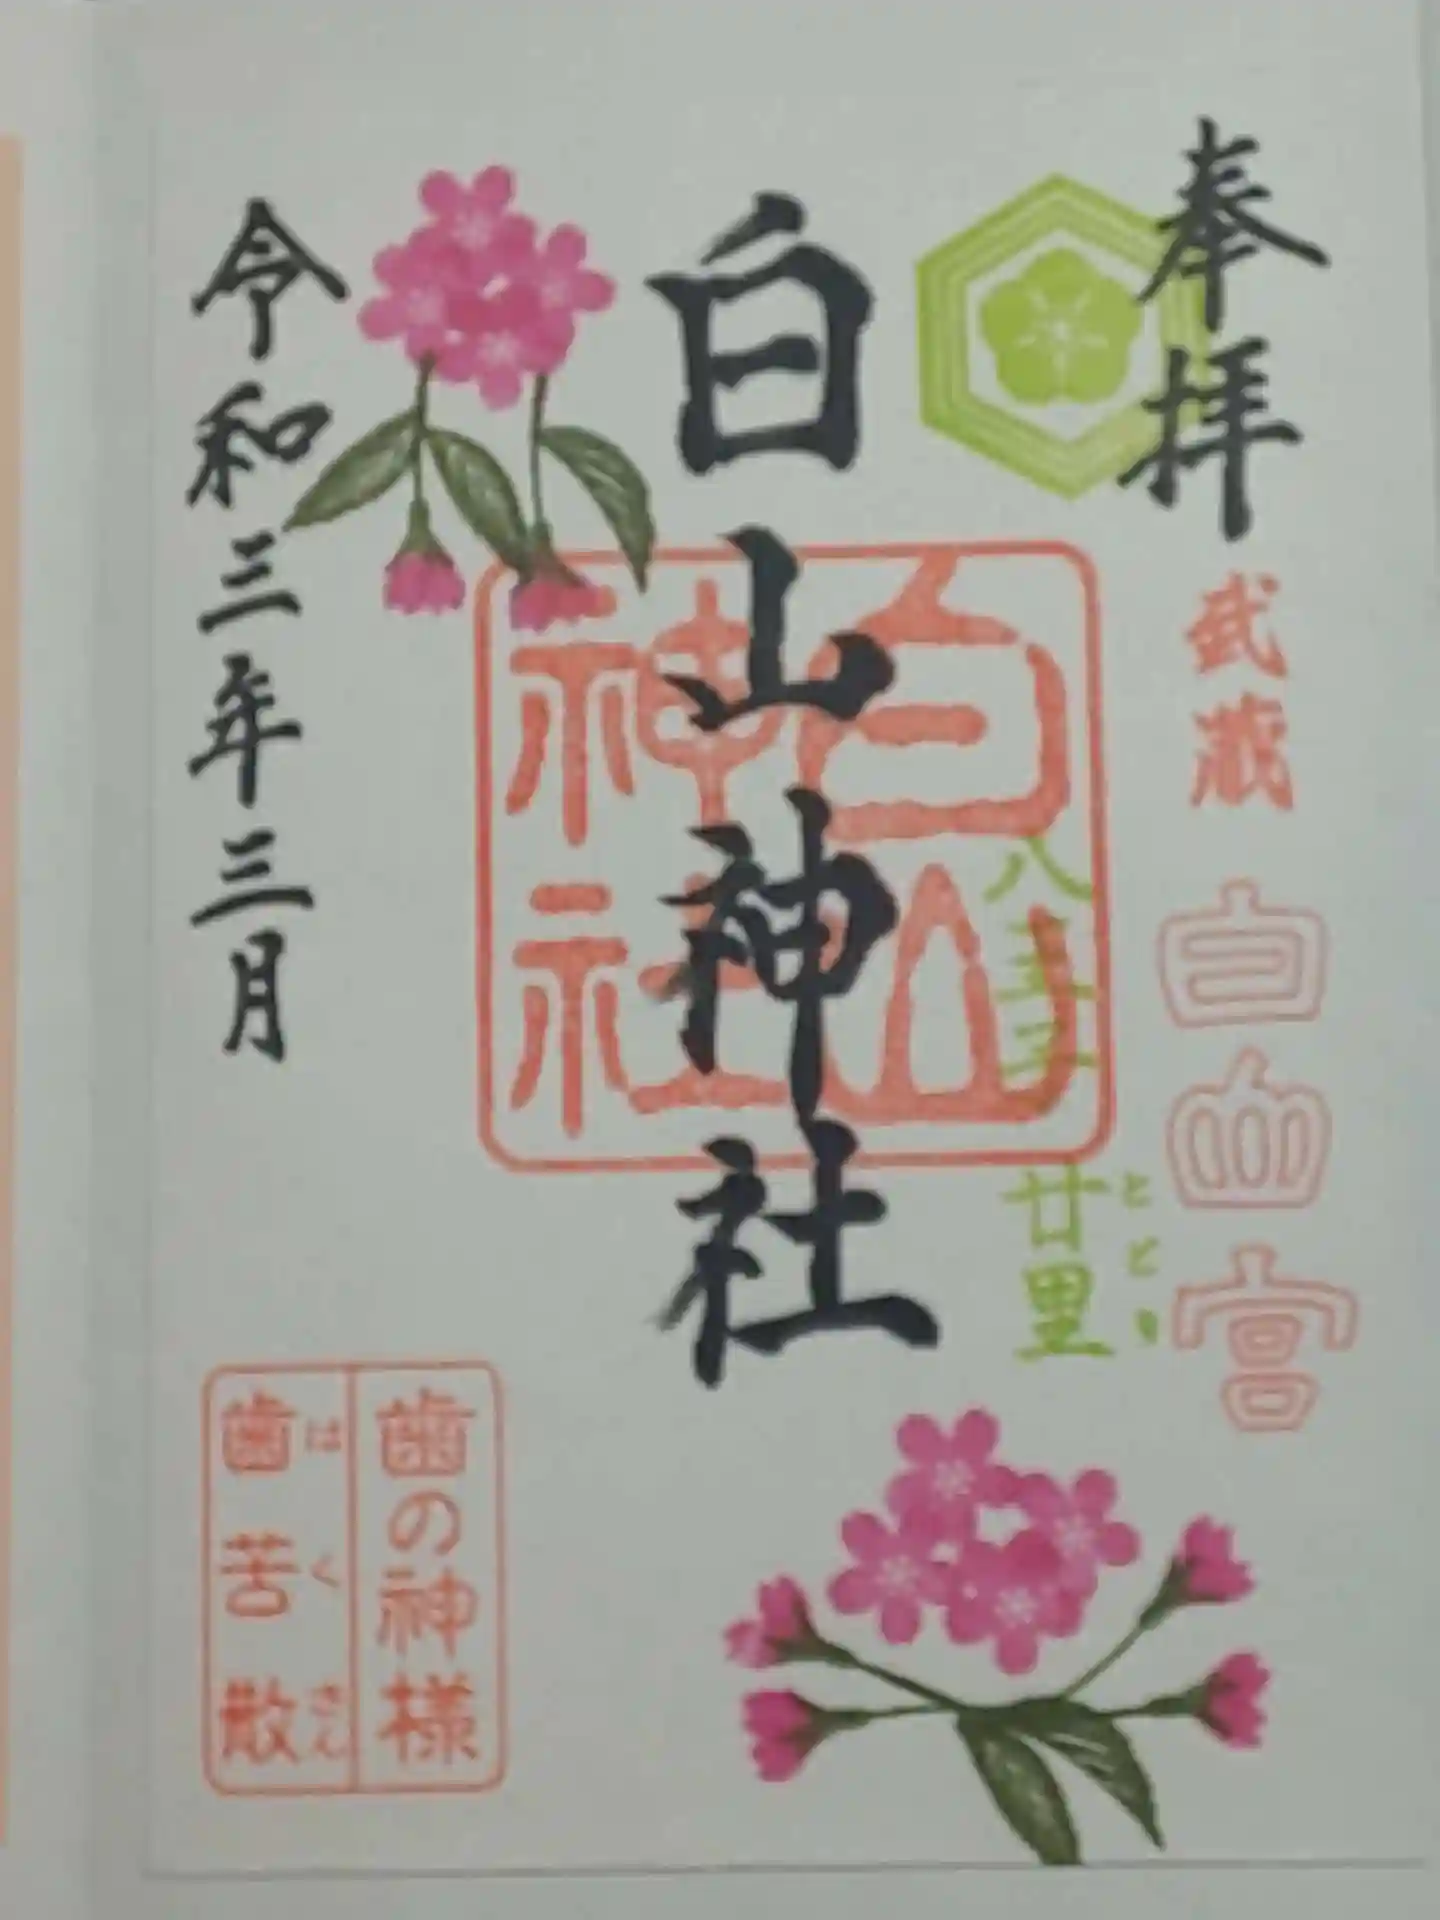 奉拝
武蔵
白山宮
八王子
廿里
ととり
白山神社
白山
神社
令和三年三月
歯の神様
歯苦散
はくさん